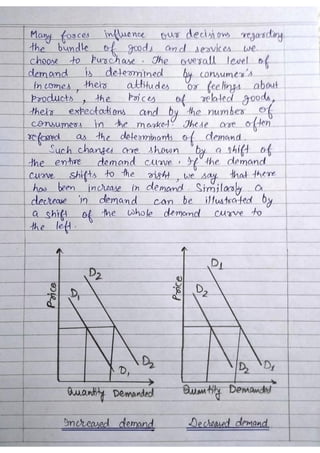 Many forces influence our decisions regarding
the bundle of goods and services we
choose to purchase. The overall level of
demand is determined by consumer's
incomes, their attitudes or feelings about
products, the prices of related goods,
their expectations and by the number of
consumers in the market. These are often
referred as the determinants of demand.
Such changes are shown by a shift of
the entire demand curve. If the demand
curve shifts to the right, we say that there
has been increase in demand. Similarly a
decrease in demand can be illustrated by
a shift of the whole demand curve to
the left.
Price
D2
D1
D1
D2
Quantity Demanded
Increased demand
Price
D1
D2
D2
D1
Quantity Demanded
Decreased demand